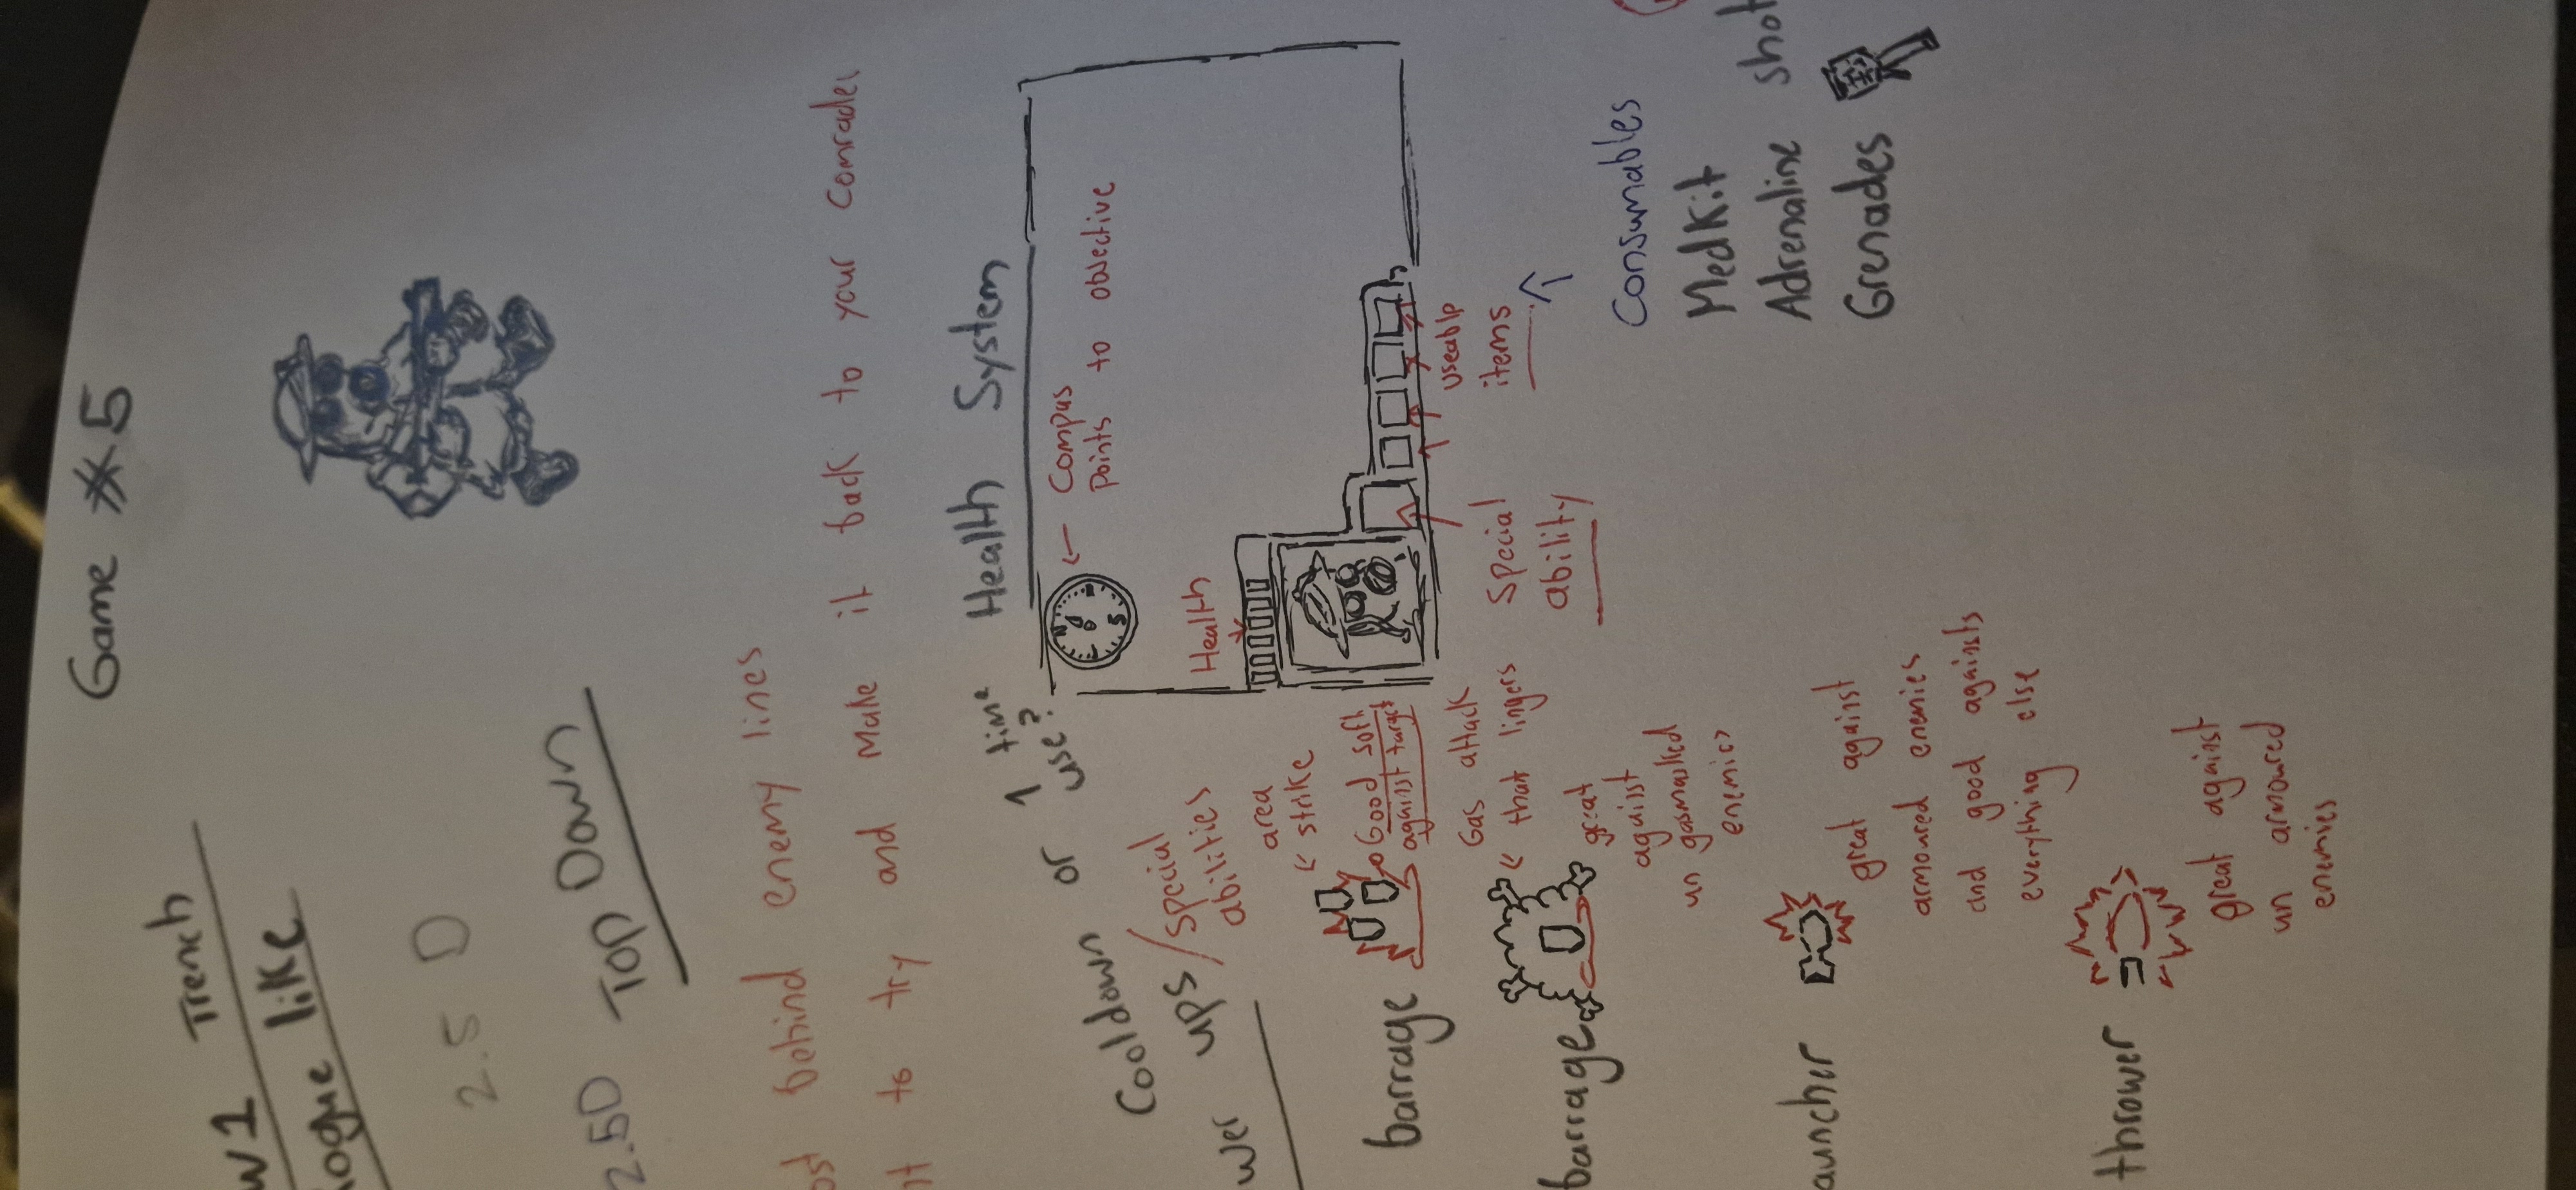 Game #5
Trench
like
2.5 D
2.5D Top Down
behind enemy lines
to try and make it back to your comrades
Health System
Cooldown or 1 time
use?
ups / special
abilities
← Compus
Points to objective
N
S
Health
Special
ability
useable
items
Consumables
Medkit
Adrenaline shot
Grenades
barrage
← area
strike
Good soft
against target
barrage
Gas attack
← that lingers
great
against
un gasmasked
enemies
great against
armoured enemies
and good againsts
everything else
thrower
great against
un armoured
enemies